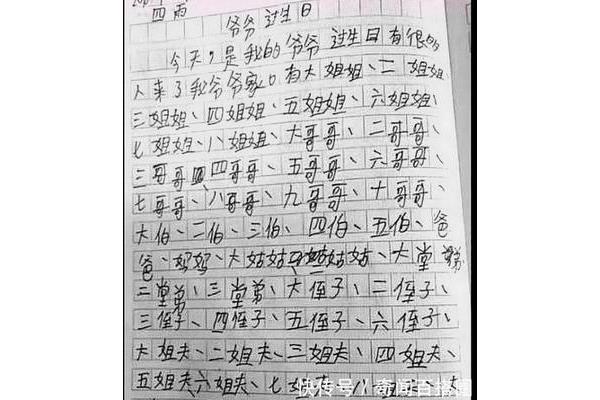 四 雨 爷爷过生日
今天,是我的爷爷过生日有很多
人来了我爷爷家。有大姐姐、二姐姐、
三姐姐、四姐姐、五姐姐、六姐姐、
七姐姐、八姐姐、大哥哥、二哥哥、
三哥哥、四哥哥、五哥哥、六哥哥、
七哥哥、八哥哥、九哥哥、十哥哥、
大伯、二伯、三伯、四伯、五伯、爸
爸、妈妈、大姑姑、二姑姑、大堂弟、
二堂弟、三堂弟、大侄子、二侄子、
三侄子、四侄子、五侄子、六侄子、
大姐夫、二姐夫、三姐夫、四姐夫、
五姐夫、六姐夫、七姐夫、八姐夫、大
快传号/奇闻百播圈